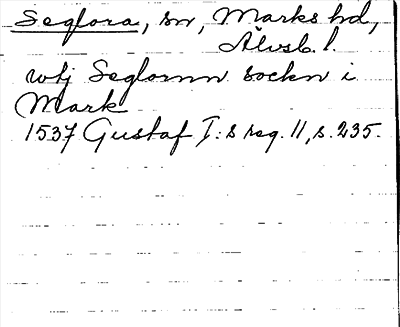 Seglora, sn, Marks hd,
Älvsb. l.
wtj Seglornn sockn i
Mark
1537 Gustaf I:s reg. 11, s. 235.